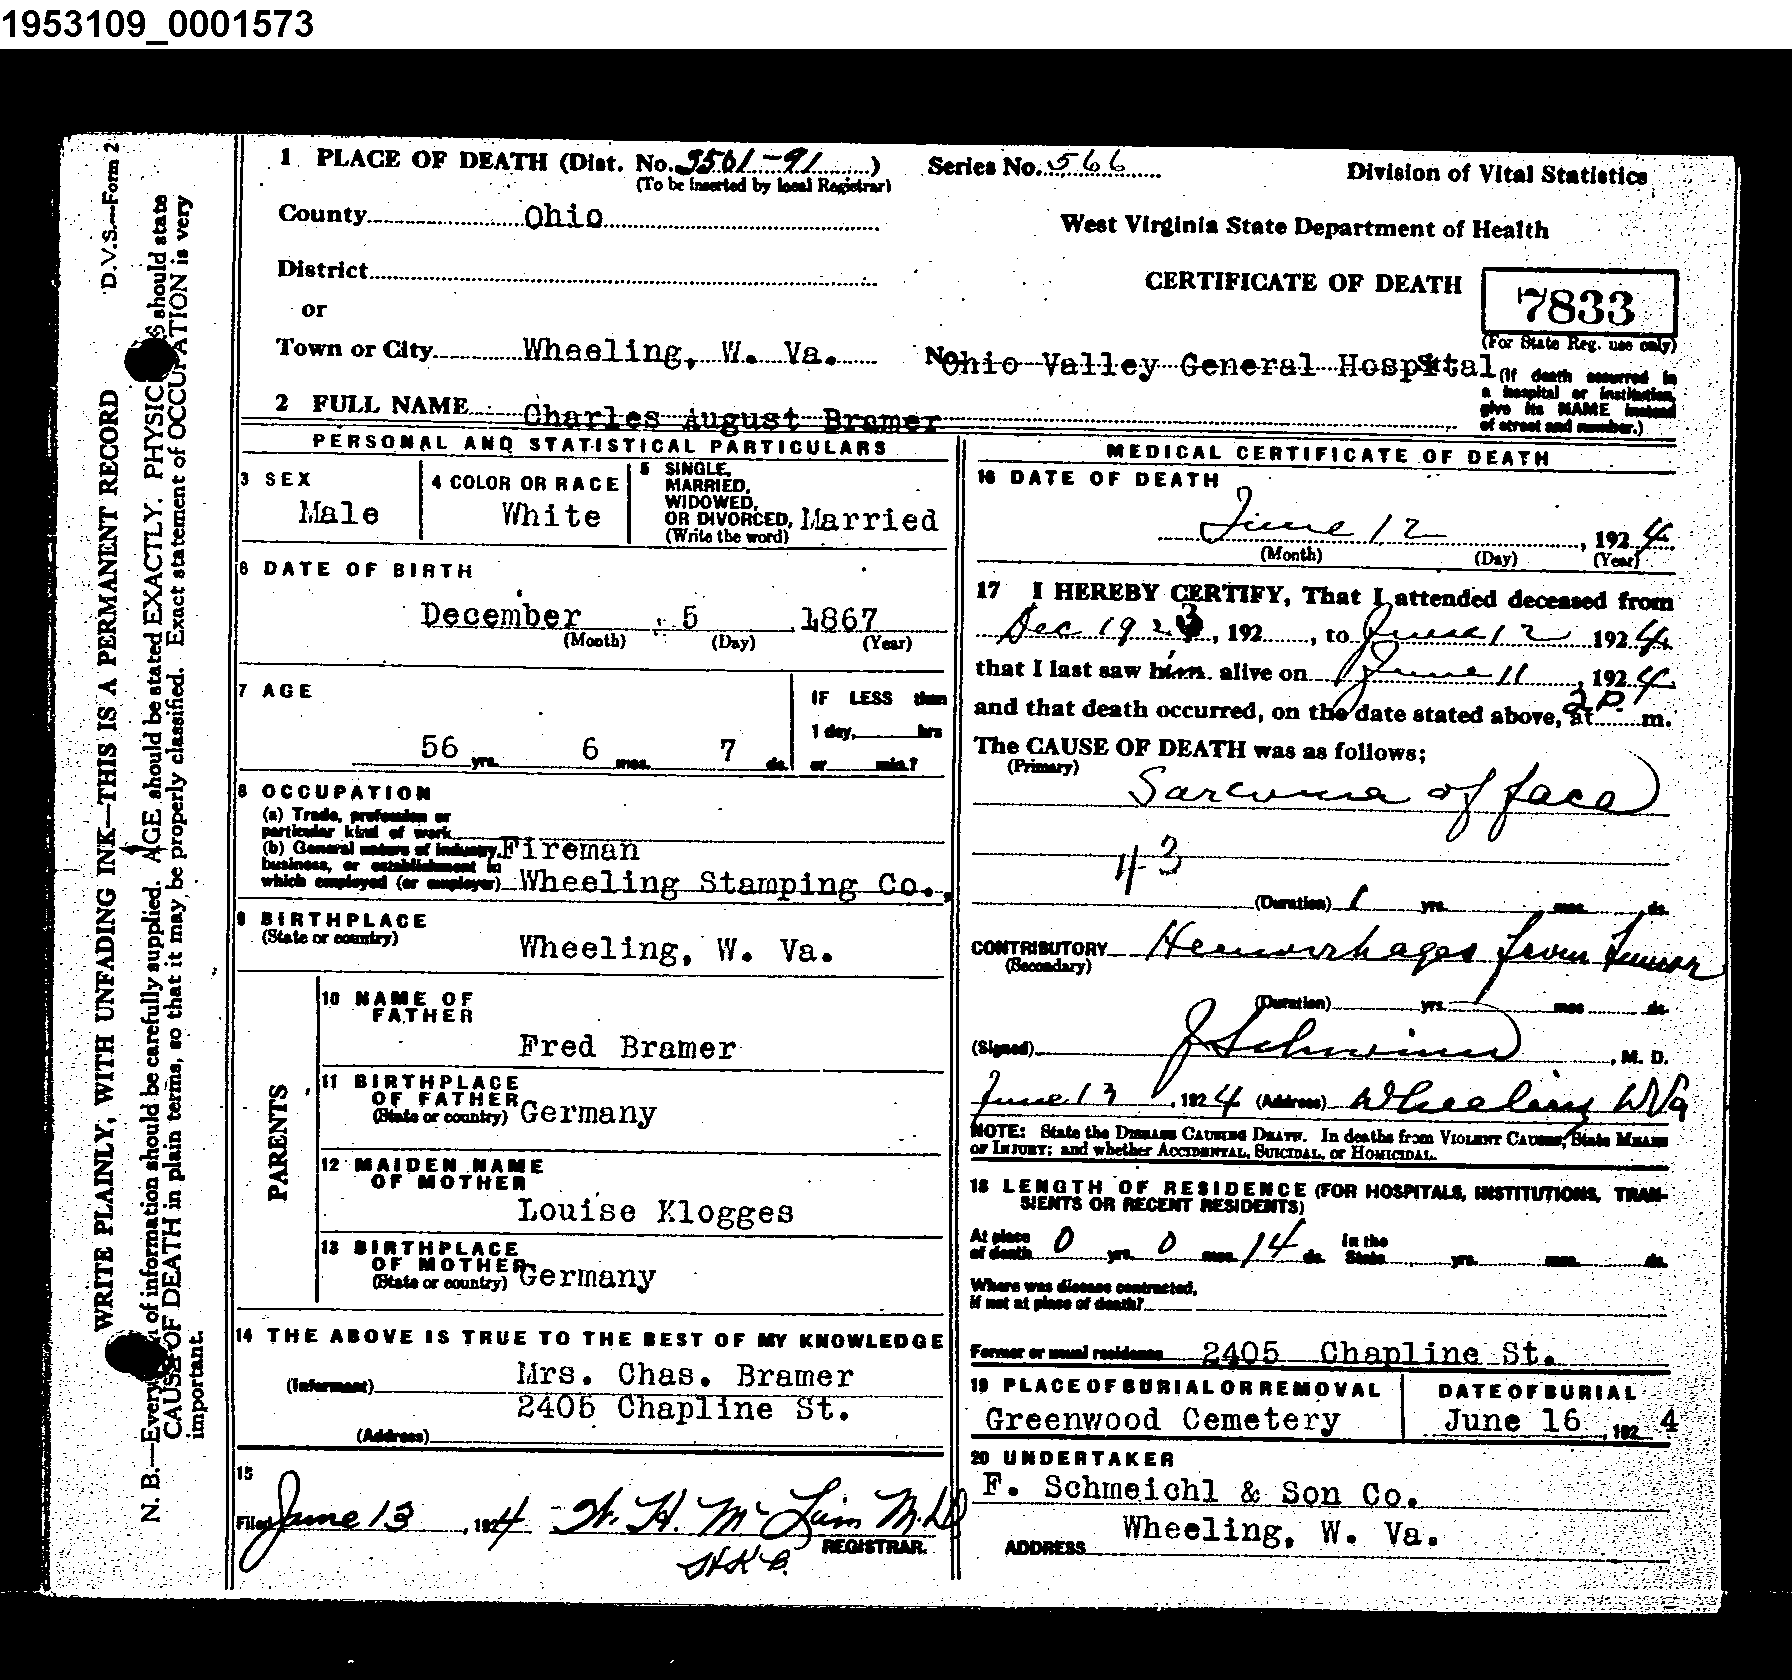 1953109_0001573
D.V.S.—Form 2
WRITE PLAINLY, WITH UNFADING INK—THIS IS A PERMANENT RECORD
N. B.—Every of information should be carefully supplied. AGE should be stated EXACTLY. PHYSIC S should state
CAUSE OF DEATH in plain terms, so that it may be properly classified. Exact statement of OCCUPATION is very
important.
1 PLACE OF DEATH (Dist. No. 3501-91)
(To be inserted by local Registrar)
Series No. 566
Division of Vital Statistics
County Ohio
West Virginia State Department of Health
District
CERTIFICATE OF DEATH
7833
(For State Reg. use only)
or
Town or City Wheeling, W. Va.
No. Ohio Valley General Hospital
(If death occurred in
a hospital or institution,
give its NAME instead
of street and number.)
2 FULL NAME Charles August Bramer
PERSONAL AND STATISTICAL PARTICULARS
3 SEX
Male
4 COLOR OR RACE
White
5 SINGLE,
MARRIED,
WIDOWED,
OR DIVORCED,
(Write the word)
Married
6 DATE OF BIRTH
December 5 1867
(Month) (Day) (Year)
7 AGE
56 yrs. 6 mos. 7 ds.
IF LESS than
1 day, hrs
or min.?
8 OCCUPATION
(a) Trade, profession or
particular kind of work
(b) General nature of industry, Fireman
business, or establishment in
which employed (or employer) Wheeling Stamping Co.,
9 BIRTHPLACE
(State or country)
Wheeling, W. Va.
PARENTS
10 NAME OF
FATHER
Fred Bramer
11 BIRTHPLACE
OF FATHER
(State or country) Germany
12 MAIDEN NAME
OF MOTHER
Louise Klogges
13 BIRTHPLACE
OF MOTHER
(State or country) Germany
14 THE ABOVE IS TRUE TO THE BEST OF MY KNOWLEDGE
(Informant) Mrs. Chas. Bramer
2405 Chapline St.
(Address)
15
Filed June 13, 1924 W. H. McLain M.D.
REGISTRAR.
MEDICAL CERTIFICATE OF DEATH
16 DATE OF DEATH
June 12, 1924
(Month) (Day) (Year)
17 I HEREBY CERTIFY, That I attended deceased from
Dec 1923, 192 , to June 12 1924
that I last saw him alive on June 11, 1924
and that death occurred, on the date stated above, at 2 P. m.
The CAUSE OF DEATH was as follows;
(Primary)
Sarcoma of face
43
(Duration) 1 yrs. mos. ds.
CONTRIBUTORY Hemorrhages from tumor
(Secondary)
(Duration) yrs. mos ds.
(Signed) J Schwinn, M. D.
June 13, 1924 (Address) Wheeling W Va
NOTE: State the DISEASE CAUSING DEATH. In deaths from VIOLENT CAUSES, State MEANS
OF INJURY; and whether ACCIDENTAL, SUICIDAL, or HOMICIDAL.
18 LENGTH OF RESIDENCE (FOR HOSPITALS, INSTITUTIONS, TRAN-
SIENTS OR RECENT RESIDENTS)
At place
of death 0 yrs. 0 mos. 14 ds.
In the
State yrs. mos. ds.
Where was disease contracted,
if not at place of death?
Former or usual residence 2405 Chapline St.
19 PLACE OF BURIAL OR REMOVAL
Greenwood Cemetery
DATE OF BURIAL
June 16, 1924
20 UNDERTAKER
F. Schmeichl & Son Co.
Wheeling, W. Va.
ADDRESS